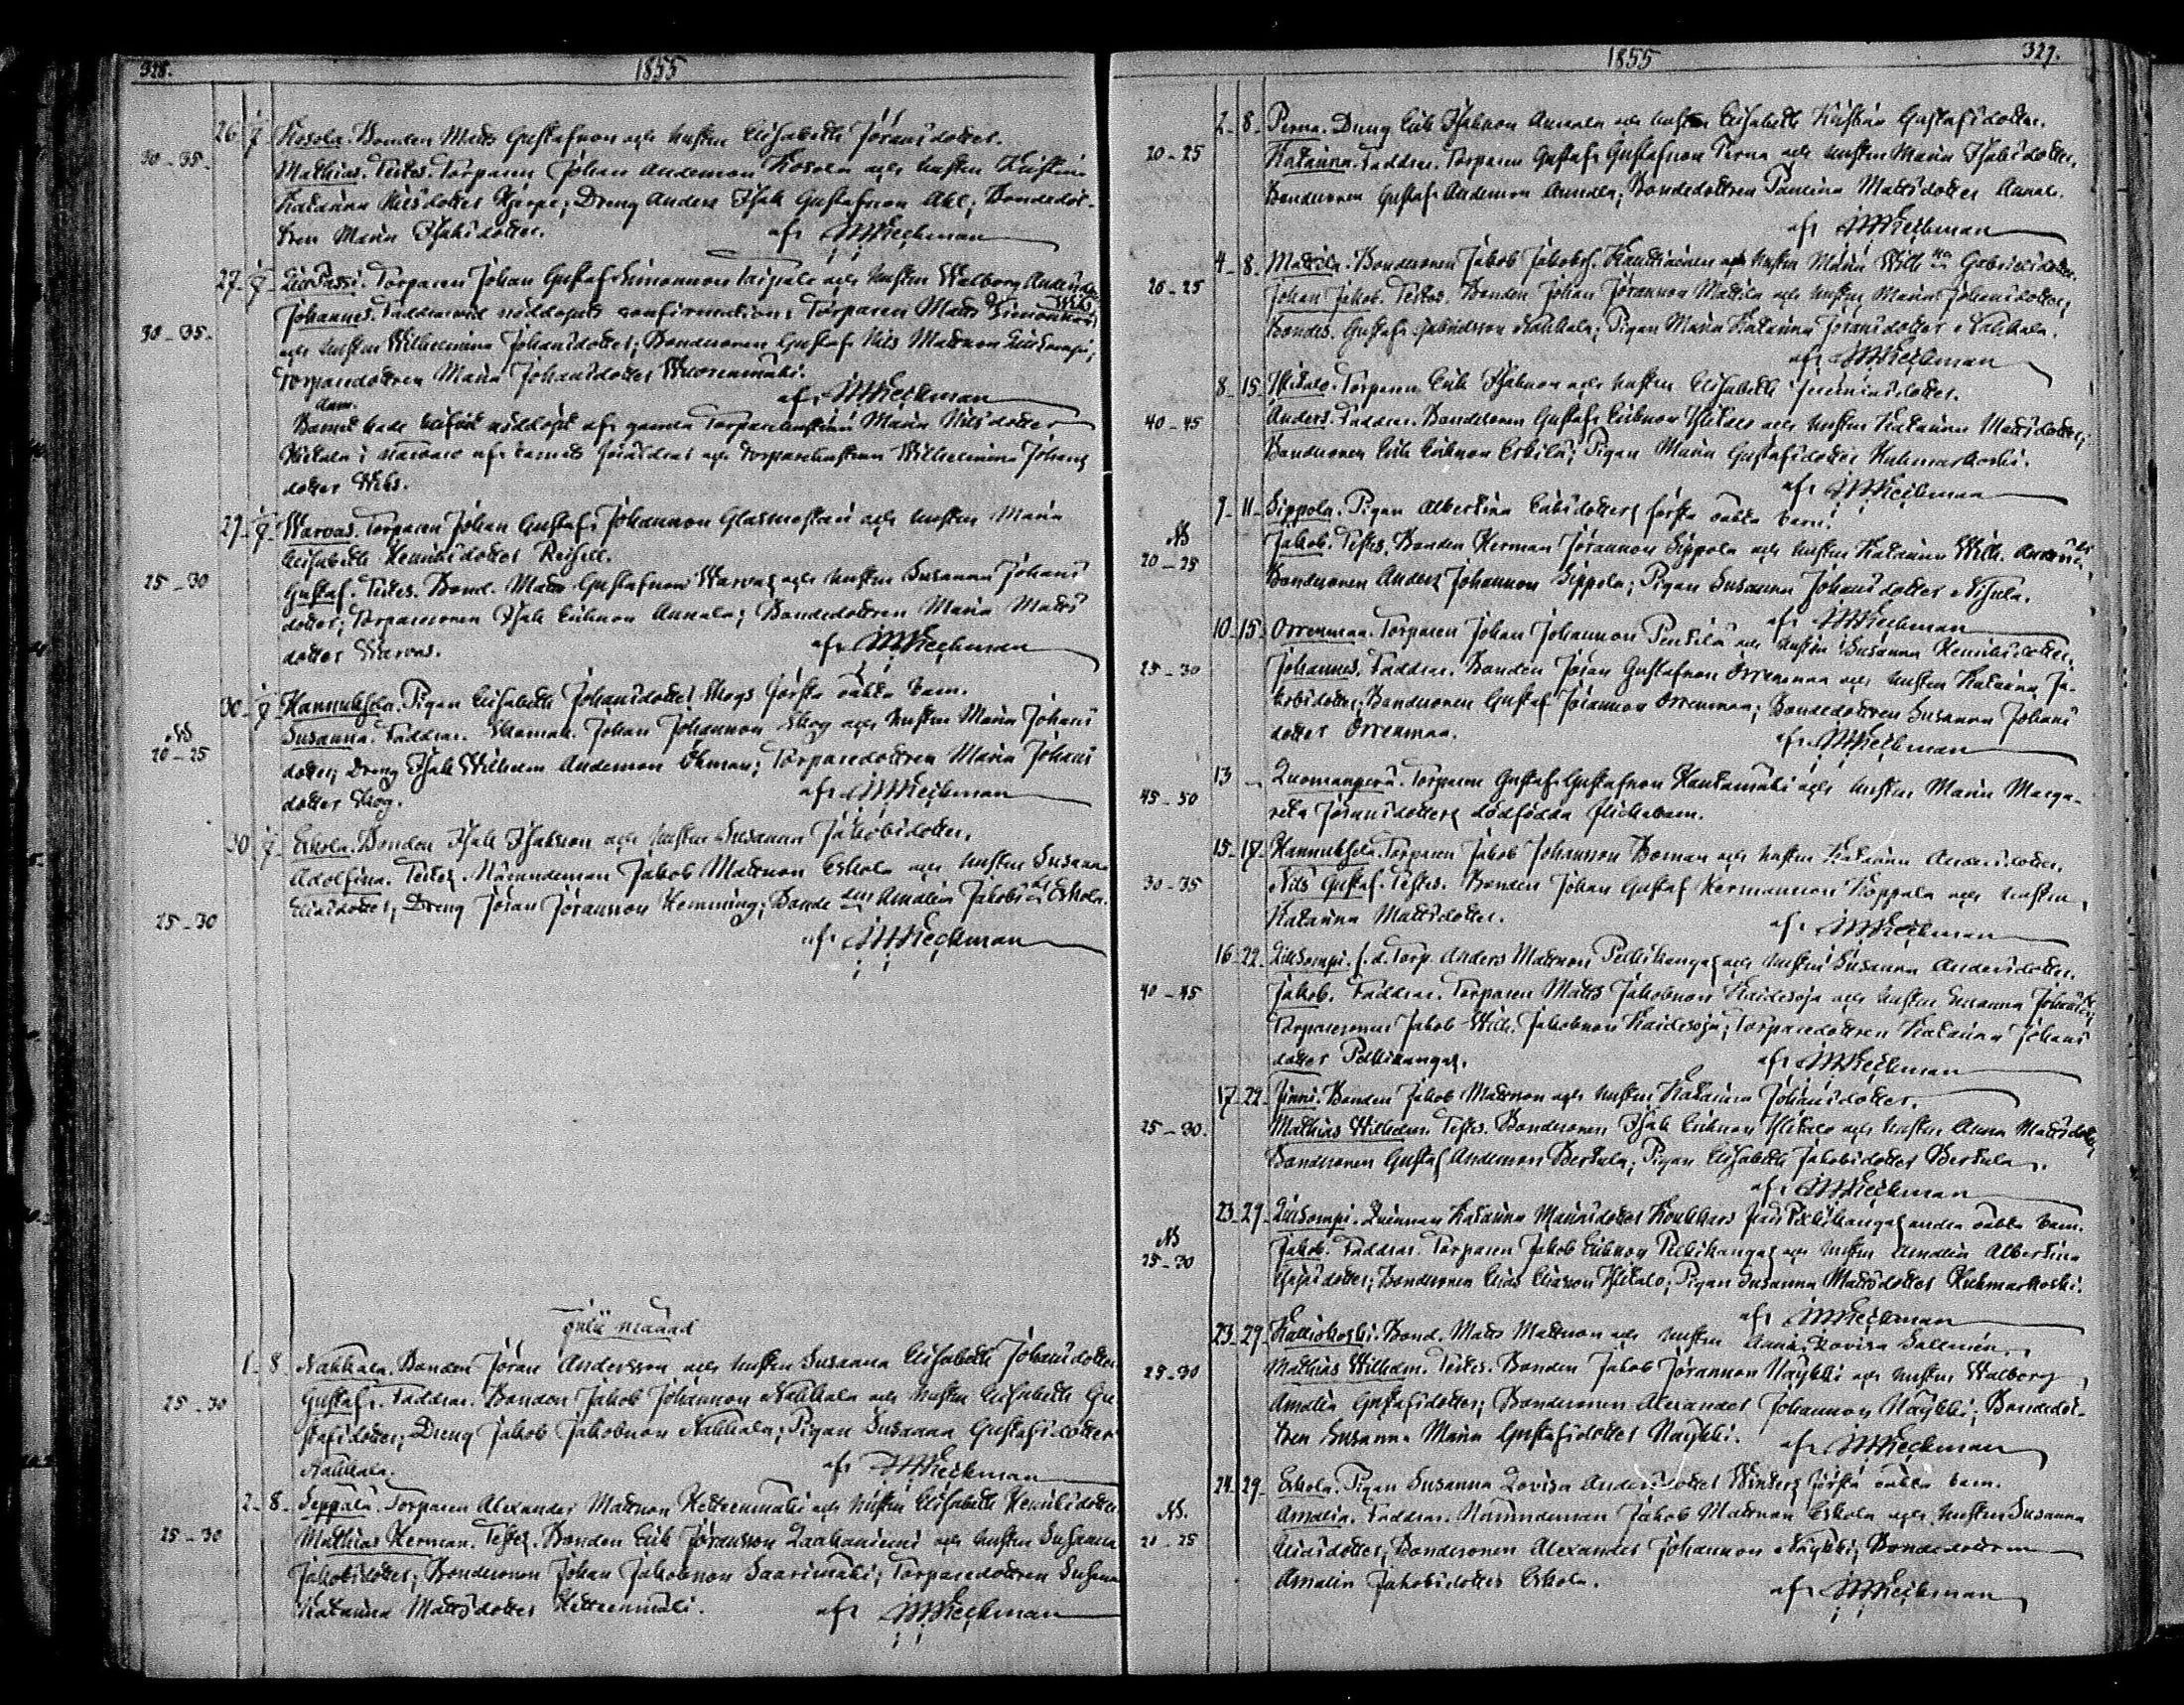 328. 1855
26 7 Kosola. Bonden Matts Gustafsson och hustru Elisabeth Jöransdotter.
30-35. Mathias. Testes. Torparen Johan Andersson Kosola och hustru Kristina
Katarina Nilsdotter; Dreng Anders Isak Gustafsson; Bondedot-
tren Maria Isaksdotter. af M. Heikman
27 7 Johan Gustaf Simonsson Taipale och hustru Walborg Andersdotter
Johannes. Faddrar vid nöddopets confirmation: Torparen Matts Simonsson
30-35. och hustru Wilhelmina Johansdotter; Bondesonen Gustaf Nils Mattsson
Torparedottren Maria Johansdotter Wuorenmäki.
af M. Heikman
Barnet hade blifvit nöddöpt af gamla Torparehustrun Maria Nilsdotter
i närvaro af barnets föräldrar och torparehustrun Wilhelmina Johans
dotter
29 7 Warvas. Torparen Johan Gustaf Johansson och hustru Maria
Elisabeth Henriksdotter
25-30 Gustaf. Testes. Bond. Matts Gustafsson Warvas och hustru Susanna Johans
dotter; Torparesonen Isak Eriksson Annala; Bondedottren Maria Matts
dotter Warvas. af M. Heikman
30 7 Hannuksela. Pigan Elisabeth Johansdotter Skogs första oäkta barn.
20-25 Susanna. Faddrar. Johan Johansson Skog och hustru Maria Johans
dotter; Dreng Isak Wilhelm Andersson Öhman; Torparedottren Maria Johans
dotter Skog. af M. Heikman
30 7 Eskola. Bonden Isak Isaksson och hustru Susanna Jakobsdotter.
Adolfina. Testes. Nämndeman Jakob Mattsson Eskola och hustru Susanna
Eliasdotter; Dreng Jöran Jöransson Hemming; Amalia Jakobs Eskola.
25-30 af M. Heikman
Julii månad
1 8 Nahkala. Bonden Jöran Andersson och hustru Susanna Elisabeth Johansdotter
25-30 Gustaf. Faddrar. Bonden Jakob Johansson Nahkala och hustru Elisabeth Gu-
stafsdotter; Dreng Jakob Jakobsson Nahkala; Pigan Susanna Gustafsdotter
Nahkala. af M. Heikman
2 8 Seppälä. Torparen Alexander Mattsson och hustru Elisabeth Henriksdotter
25-30 Mathias Herman. Testes. Bonden Erik Jöransson Laakaniemi och hustru Susanna
Jakobsdotter; Bondesonen Johan Jakobsson Saarimäki; Torparedottren Susanna
Katarina Mattsdotter af M. Heikman
1855 327.
2 8 Perna. Dreng Erik Isaksson Annala och hustru Elisabeth Kristina Gustafsdotter.
20-25 Katarina. Faddrar. Torparen Gustaf Gustafsson Perna och hustru Maria Isaksdotter,
Bondesonen Gustaf Andersson Annala; Bondedottren Paulina Mattsdotter Annala.
af M. Heikman
4 8 Mattila. Bondesonen Jakob Jakobss. och hustru Maria Wilh:na Gabrielsdotter
20-25 Johan Jakob. Testes. Bonden Johan Jöransson Mattila och hustru Maria Johansdotter;
Bondes. Gustaf Gabrielsson Nahkala; Pigan Maria Katarina Jöransdotter Nahkala.
af M. Heikman
8 15 Ylitalo. Torparen Erik Isaksson och hustru Elisabeth Jeremiasdotter.
40-45 Anders. Faddrar. Bondesonen Gustaf Eriksson Ylitalo och hustru Katarina Mattsdotter;
Bondesonen Erik Eriksson Erkilä; Pigan Maria Gustafsdotter Kuhmarkoski.
af M. Heikman
9 11 Sippola. Pigan Albertina Eriksdotters första oäkta barn.
20-25 Jakob. Testes. Bonden Herman Jöransson Sippola och hustru Katarina Wilh.
Bondesonen Anders Johansson Sippola; Pigan Susanna Johansdotter Nisula.
af M. Heikman
10 15 Orrenmaa. Torparen Johan Johansson Penttilä och hustru Susanna Henriksdotter.
25-30 Johannes. Faddrar. Bonden Jöran Gustafsson Orrenmaa och hustru Katarina Ja-
kobsdotter; Bondesonen Gustaf Jöransson Orrenmaa; Bondedottren Susanna Johans
dotter Orrenmaa. af M. Heikman
13 Luomanperä. Torparen Gustaf Gustafsson Hautamäki och hustru Maria Marga-
45-50 reta Jöransdotters dödfödda flickebarn.
15 17 Hannuksela. Torparen Jakob Johansson Boman och hustru Katarina Andersdotter.
30-35 Nils Gustaf. Testes. Bonden Johan Gustaf Hermansson Koppala och hustru
Katarina Mattsdotter. af M. Heikman
16 22 Lillsompi. f.d. Torp. Anders Mattsson Pelkikangas och hustru Susanna Andersdotter.
40-45 Jakob. Faddrar. Torparen Matts Jakobsson Kaidesoja och hustru Susanna Johansdotter;
Torparesonen Jakob Wilh. Jakobsson Kaidesoja; Torparedottren Katarina Johans
dotter Pelkikangas. af M. Heikman
17 22 Jinni. Bonden Jakob Mattsson och hustru Katarina Johansdotter.
25-30. Mathias Wilhelm. Testes. Bondesonen Isak Eriksson Ylitalo och hustru Anna Mattsdotter;
Bondesonen Gustaf Andersson Bertula; Pigan Elisabeth Jakobsdotter Bertula.
af M. Heikman
23 29 Lillsompi. Qvinnan Katarina Mariasdotter från Pelkikangas andra oäkta barn.
25-30 Jakob. Faddrar. Torparen Jakob Eriksson Pelkikangas och hustru Amalia Albertina
Bondesonen Elias Eliasson Ylitalo; Pigan Susanna Mattsdotter Kuhmarkoski.
af M. Heikman
23 29 Kattiskoski. Bond. Matts Mattsson och hustru Anna Lovisa Sallmén.
25-30 Mathias Wilhelm. Testes. Bonden Jakob Jöransson Näykki och hustru Walborg
Amalia Gustafsdotter; Bondesonen Alexander Johansson Näykki; Bondedot-
tren Susanna Maria Gustafsdotter Näykki. af M. Heikman
24 29 Eskola. Pigan Susanna Lovisa Andersdotter Winters första oäkta barn.
20-25 Amalia. Faddrar. Nämndeman Jakob Mattsson Eskola och hustru Susanna
Eliasdotter; Bondesonen Alexander Johansson Näykki; Bondedottren
Amalia Jakobsdotter Eskola. af M. Heikman